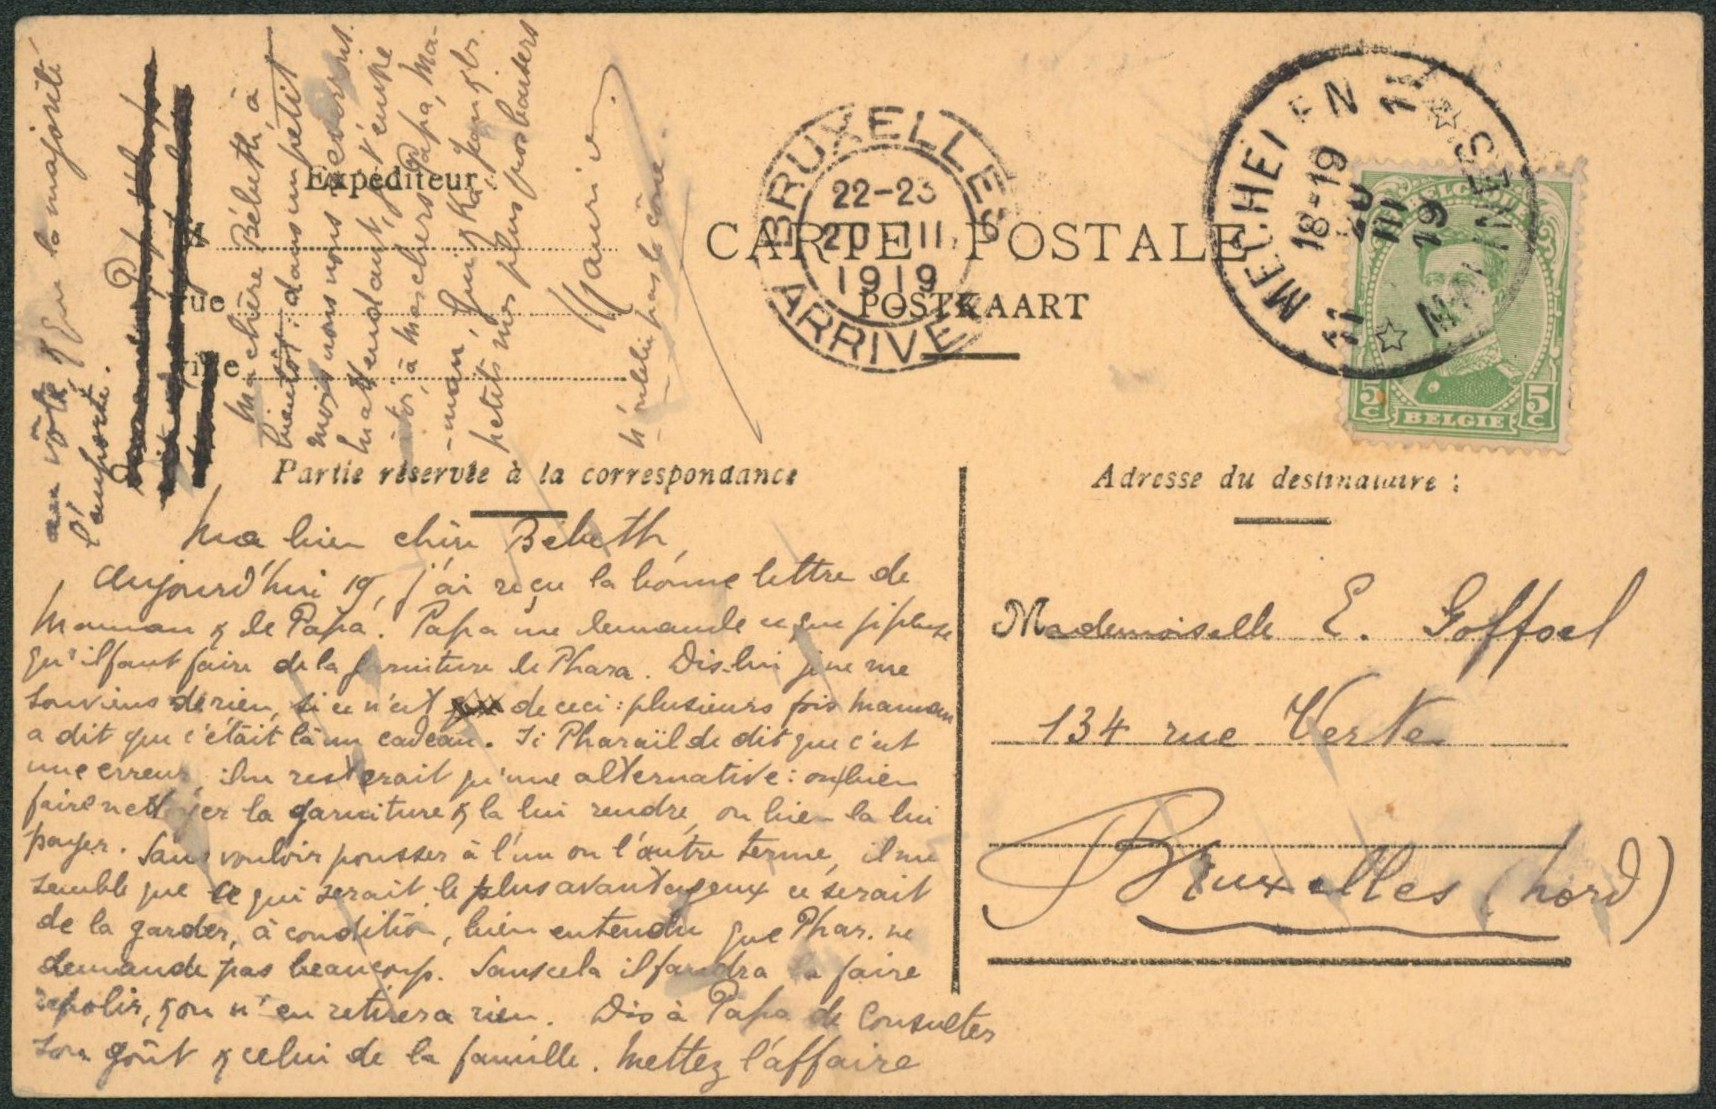 CARTE POSTALE
POSTKAART
Expéditeur :
M
rue
ville
Partie réservée à la correspondance
Adresse du destinataire :
BRUXELLES
22-23
20 III
1919
ARRIVÉE
MECHELEN
18-19
20
III
19
MALINES
BELGIE
5c
5c
Mademoiselle E. Goffoel
134 rue Verte
Bruxelles (nord)
Ma bien chère Bébeth,
Aujourd'hui 19, j'ai reçu la bonne lettre de
Maman & de Papa. Papa me demande ce que je pense
qu'il faut faire de la garniture de Phara. Dis-lui je ne me
souviens de rien, si ce n'est de ceci : plusieurs fois maman
a dit que c'était là un cadeau. Si Pharaïlde dit que c'est
une erreur il ne resterait qu'une alternative : ou bien
faire nettoyer la garniture & la lui rendre, ou bien la lui
payer. Sans vouloir pousser à l'un ou l'autre terme, il me
semble que ce qui serait le plus avantageux ce serait
de la garder, à condition, bien entendu que Phar. ne
demande pas beaucoup. Sans cela il faudra la faire
repolir, & on n'en retirera rien. Dis à Papa de consulter
son goût & celui de la famille. Mettez l'affaire
au vote & que la majorité
l'emporte.
Ma chère Bébeth, à
bientôt : dans un petit
mois nous nous reverrons.
En attendant, j'envoie
à mes chers Papa, Ma-
-man,
petits mes plus gros baisers
Maurice.
N'oublie pas le cône.